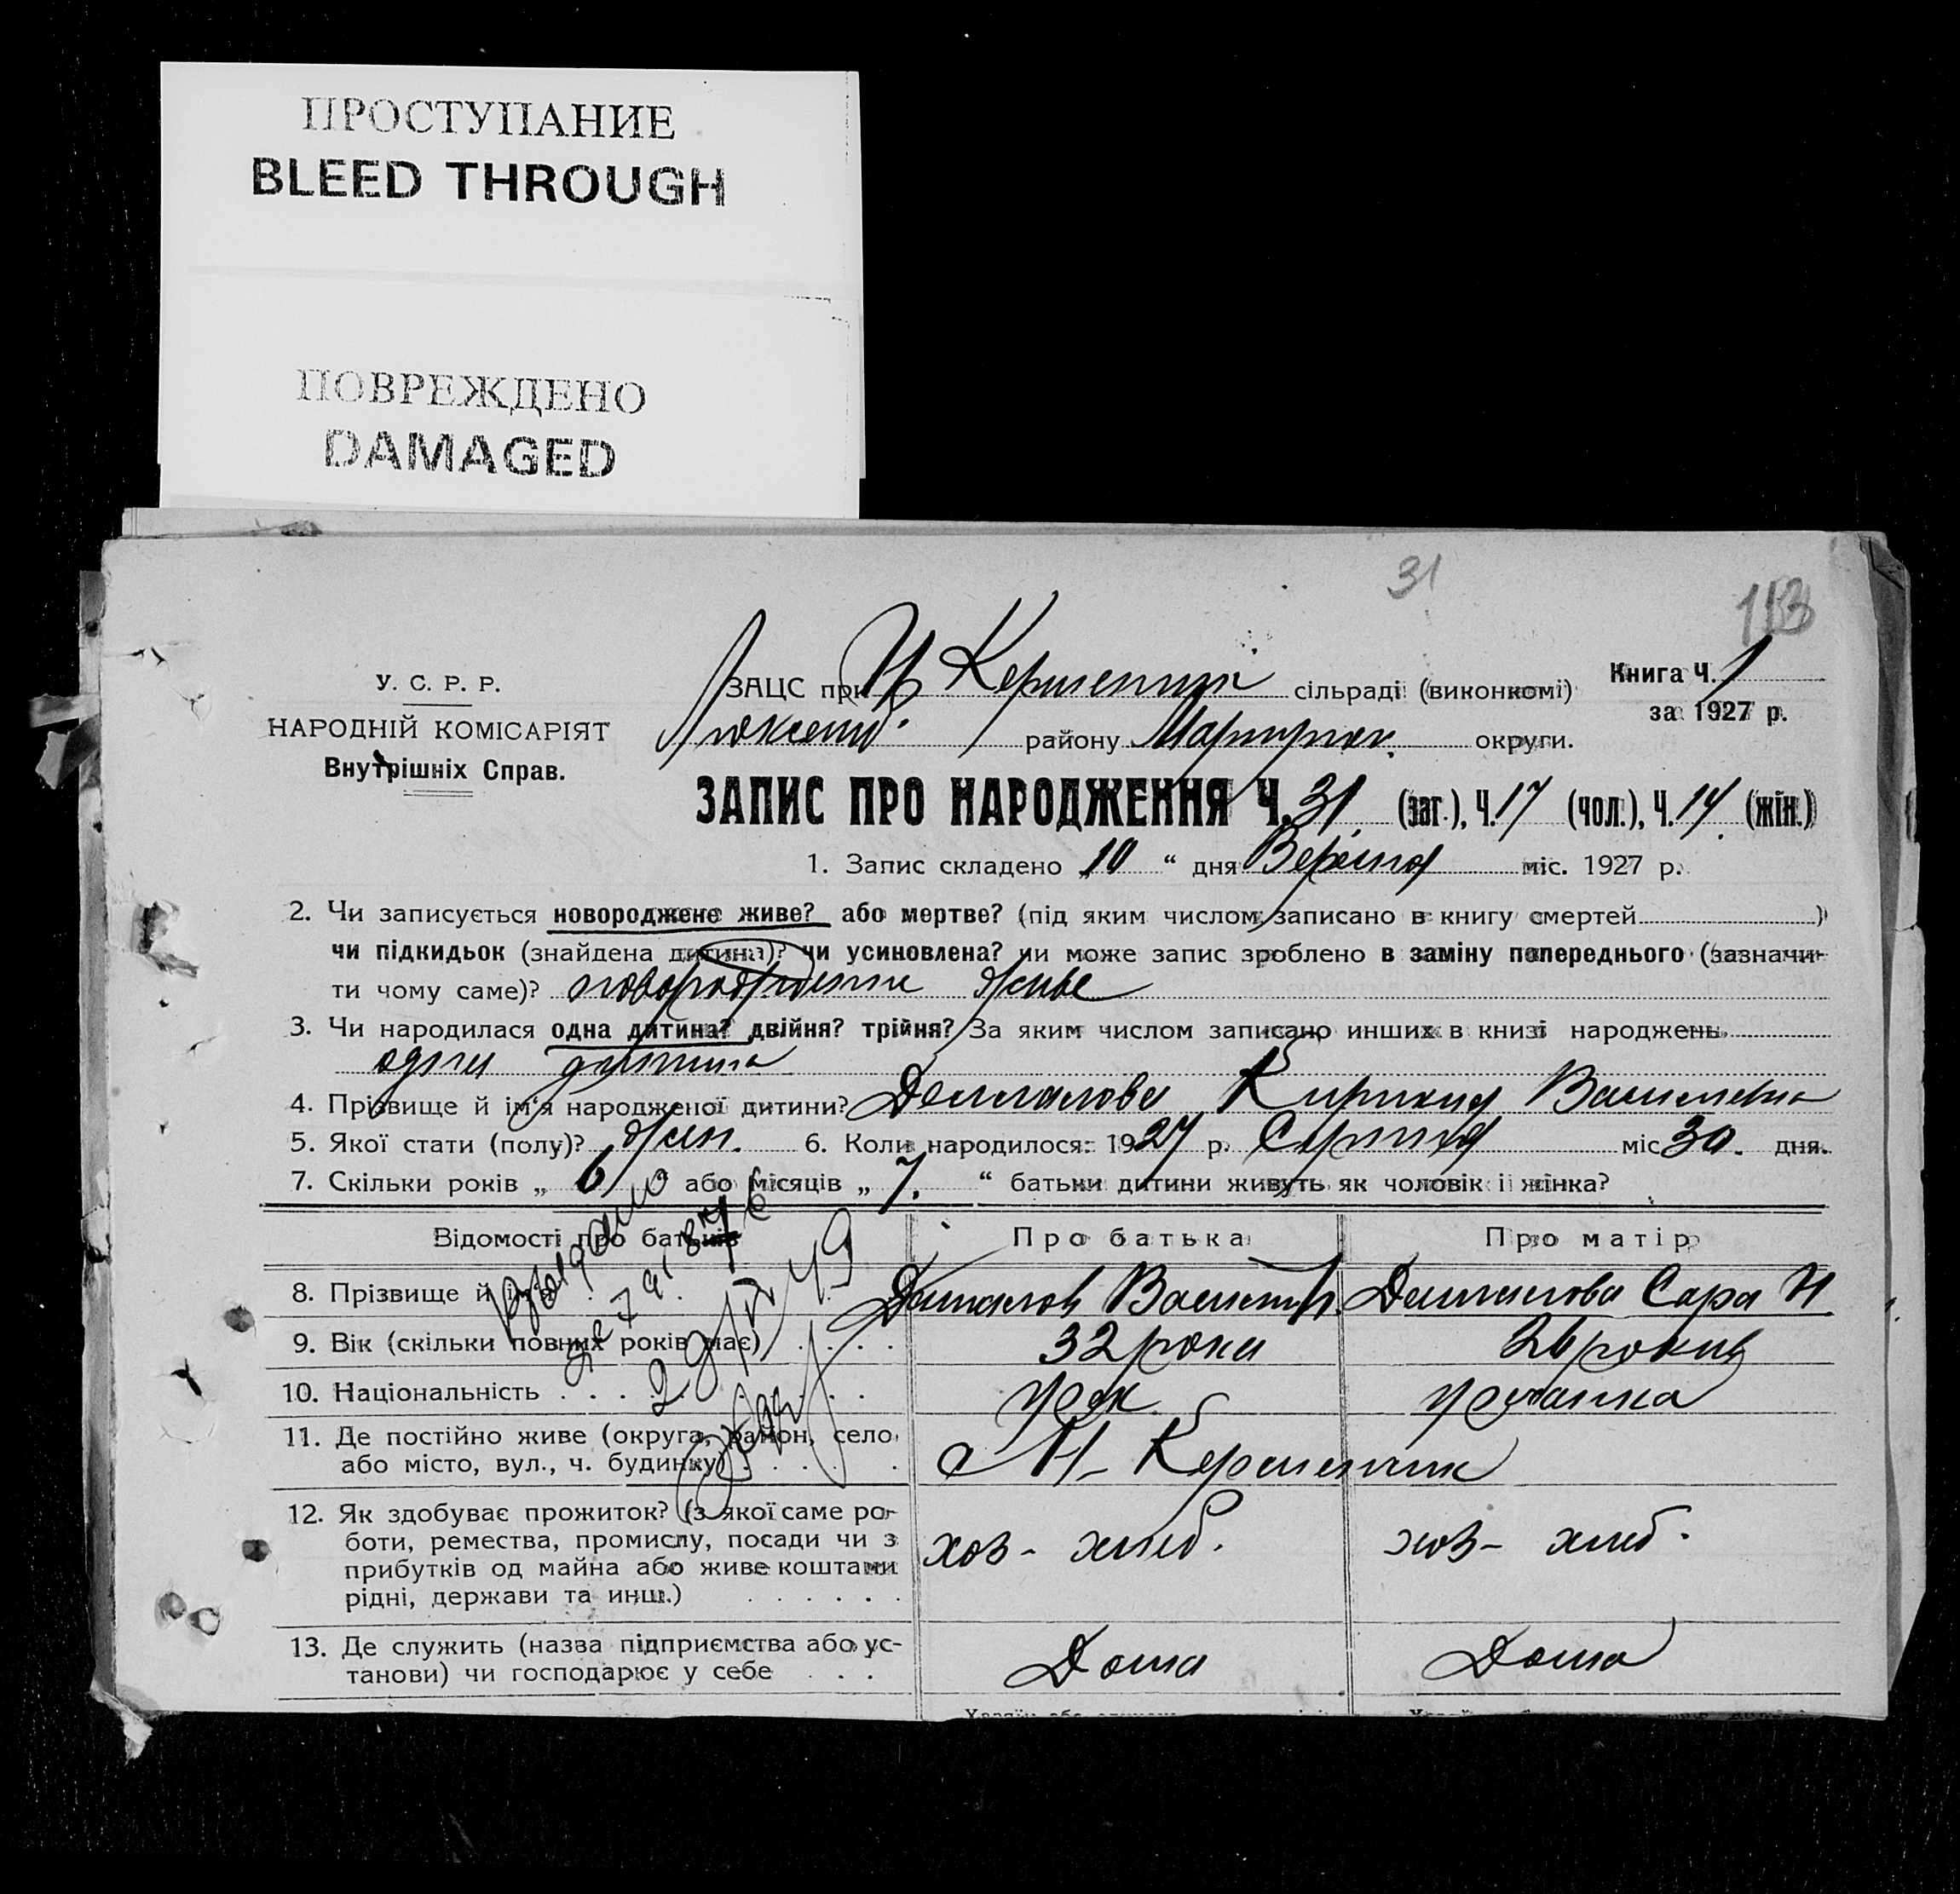 ПРОСТУПАНИЕ
BLEED THROUGH
ПОВРЕЖДЕНО
DAMAGED
31
113
У. С. Р. Р.
НАРОДНІЙ КОМІСАРІЯТ
Внутрішніх Справ.
ЗАЦС при Н Керменчик сільраді (виконкомі)
Книга Ч. 1
за 1927 р.
району Маріупол. округи.
ЗАПИС ПРО НАРОДЖЕННЯ Ч. 31 (заг.), Ч. 17 (чол.), Ч. 14 (жін.)
1. Запис складено „ 10 “ дня Вересня міс. 1927 р.
2. Чи записується новороджене живе? або мертве? (під яким числом записано в книгу смертей )
чи підкидьок (знайдена дитина)? чи усиновлена? чи може запис зроблено в заміну попереднього (зазначи-
ти чому саме)? новорожденне живе
3. Чи народилася одна дитина? двійня? трійня? За яким числом записано инших в книзі народжень
одна дитина
4. Прізвище й ім'я народженої дитини? Василевна
5. Якої стати (полу)? жін. 6. Коли народилося: 1927 р. Серпня міс 30. дня.
7. Скільки років „ 6 або місяців „ 7. “ батьки дитини живуть як чоловік і жінка?
Відомості про батьків
Про батька
Про матір
8. Прізвище й ім'я Сара И
9. Вік (скільки повних років має) . . . . 32 роки 26 років
10. Національність . . . . грек гречанка
11. Де постійно живе (округа, район, село
або місто, вул., ч. будинку) . . . . . Н- Керменчик
12. Як здобуває прожиток? (з якої саме ро-
боти, ремества, промислу, посади чи з
прибутків од майна або живе коштами
рідні, держави та инш.) . . . . . .
хов- хліб. хов- хліб.
13. Де служить (назва підприємства або ус-
танови) чи господарює у себе . . .
Дома Дома